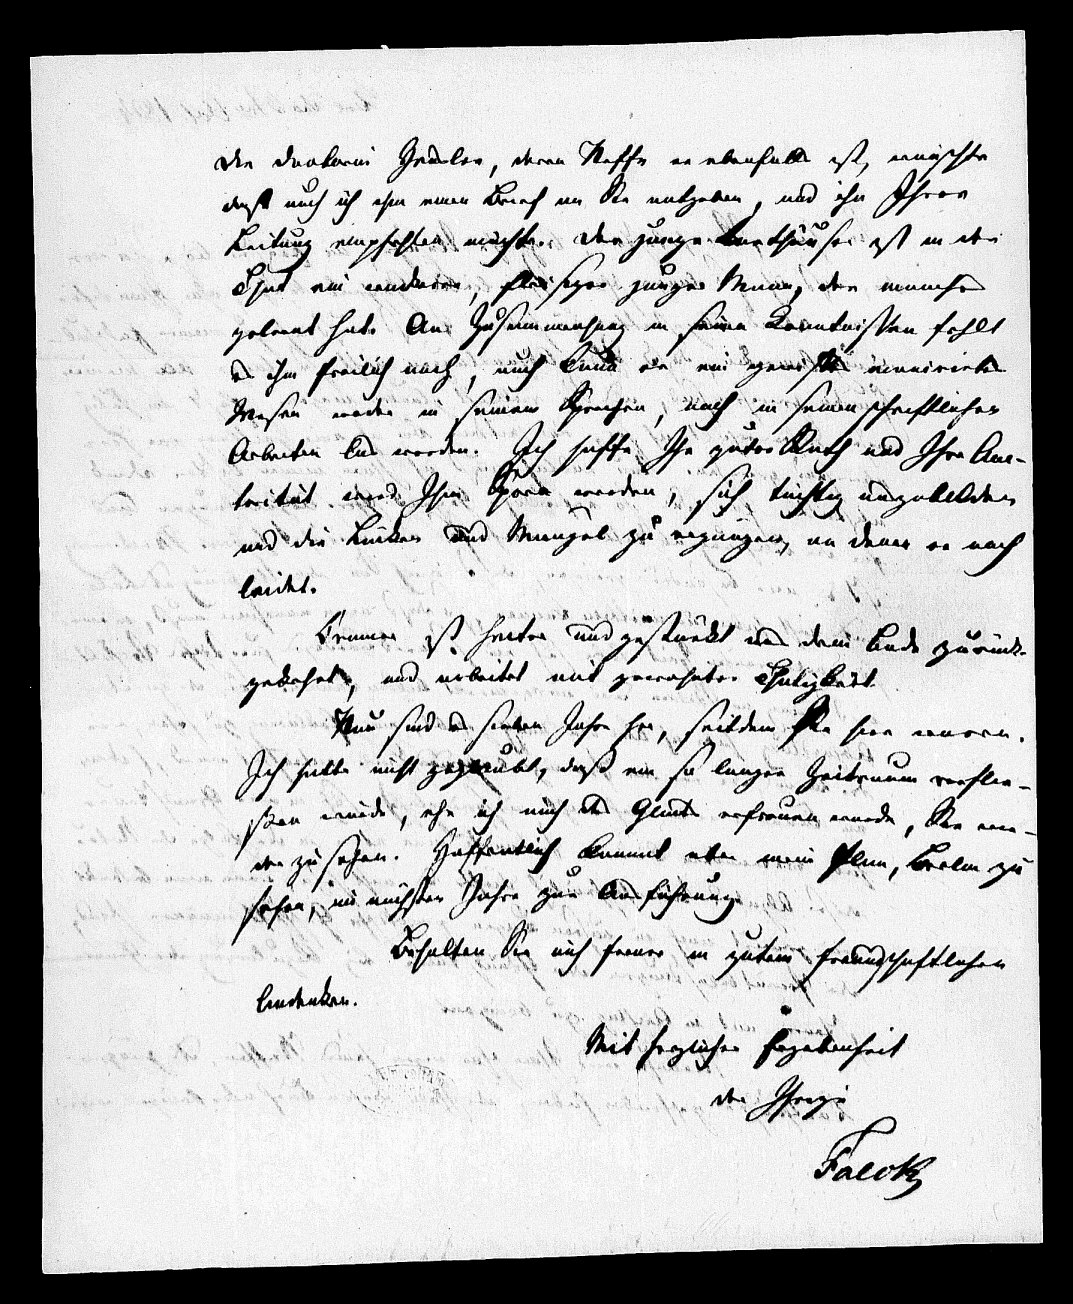 Die Doctorin Gessler, deren Neffe er ebenfalls ist, wünscht
daß auch ich ihm einen Brief an Sie mitgeben, und ihn Ihrer
Leitung empfehlen möchte. Der junge ist in der
That ein wackerer, fleißiger junger Mann, der manches
gelernt hat. An Zusammenhang in seinen Kenntnissen fehlt
es ihm freilich noch, auch kann er ein gewisses manierirtes
Wesen weder in seinem Sprechen, noch in seinen schriftlichen
Arbeiten los werden. Ich hoffe Ihr guter Rath und Ihre Auc-
torität wird ihm Sporn werden, sich tüchtig auszubilden
und die Lücken und Mängel zu ergänzen, an denen er noch
leidet.
ist heiter und gestärkt aus dem Bade zurück-
gekehrt, und arbeitet mit gewohnter Thätigkeit.
Nun sind es sieben Jahre her, seitdem Sie hier waren.
Ich hätte nicht geglaubt, daß ein so langer Zeitraum verflie-
ßen würde, ehe ich mich des Glücks erfreuen würde, Sie wie-
der zu sehen. Hoffentlich kommt aber mein Plan, Berlin zu
sehen, im nächsten Jahre zur Ausführung.
Behalten Sie mich ferner in gutem freundschaftlichen
Andenken.
Mit herzlicher Ergebenheit
der Ihrige